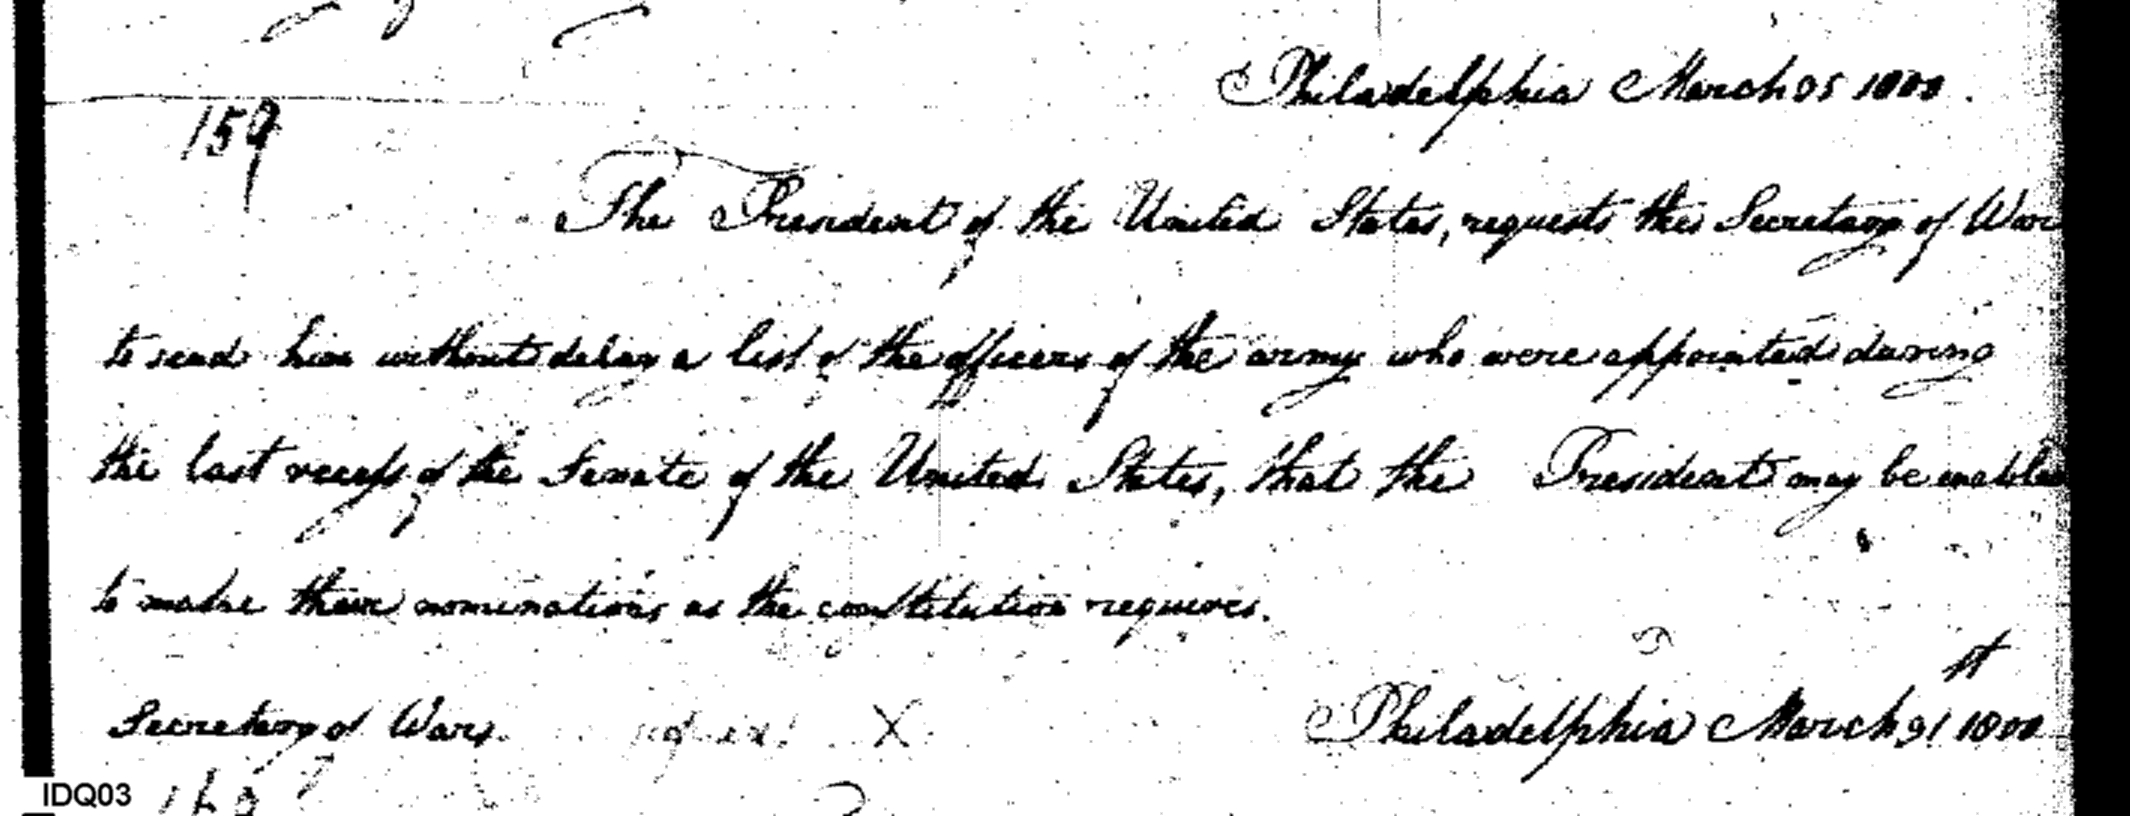 Philadelphia March 25 1800.
159
The President of the United States, requests the Secretary of War
to send him without delay a list of the officers of the army who were appointed during
the last recess of the Senate of the United States, that the President may be enabled
to make their nominations as the constitution requires.
Secretary of War. X Philadelphia March 31st 1800
IDQ03 160